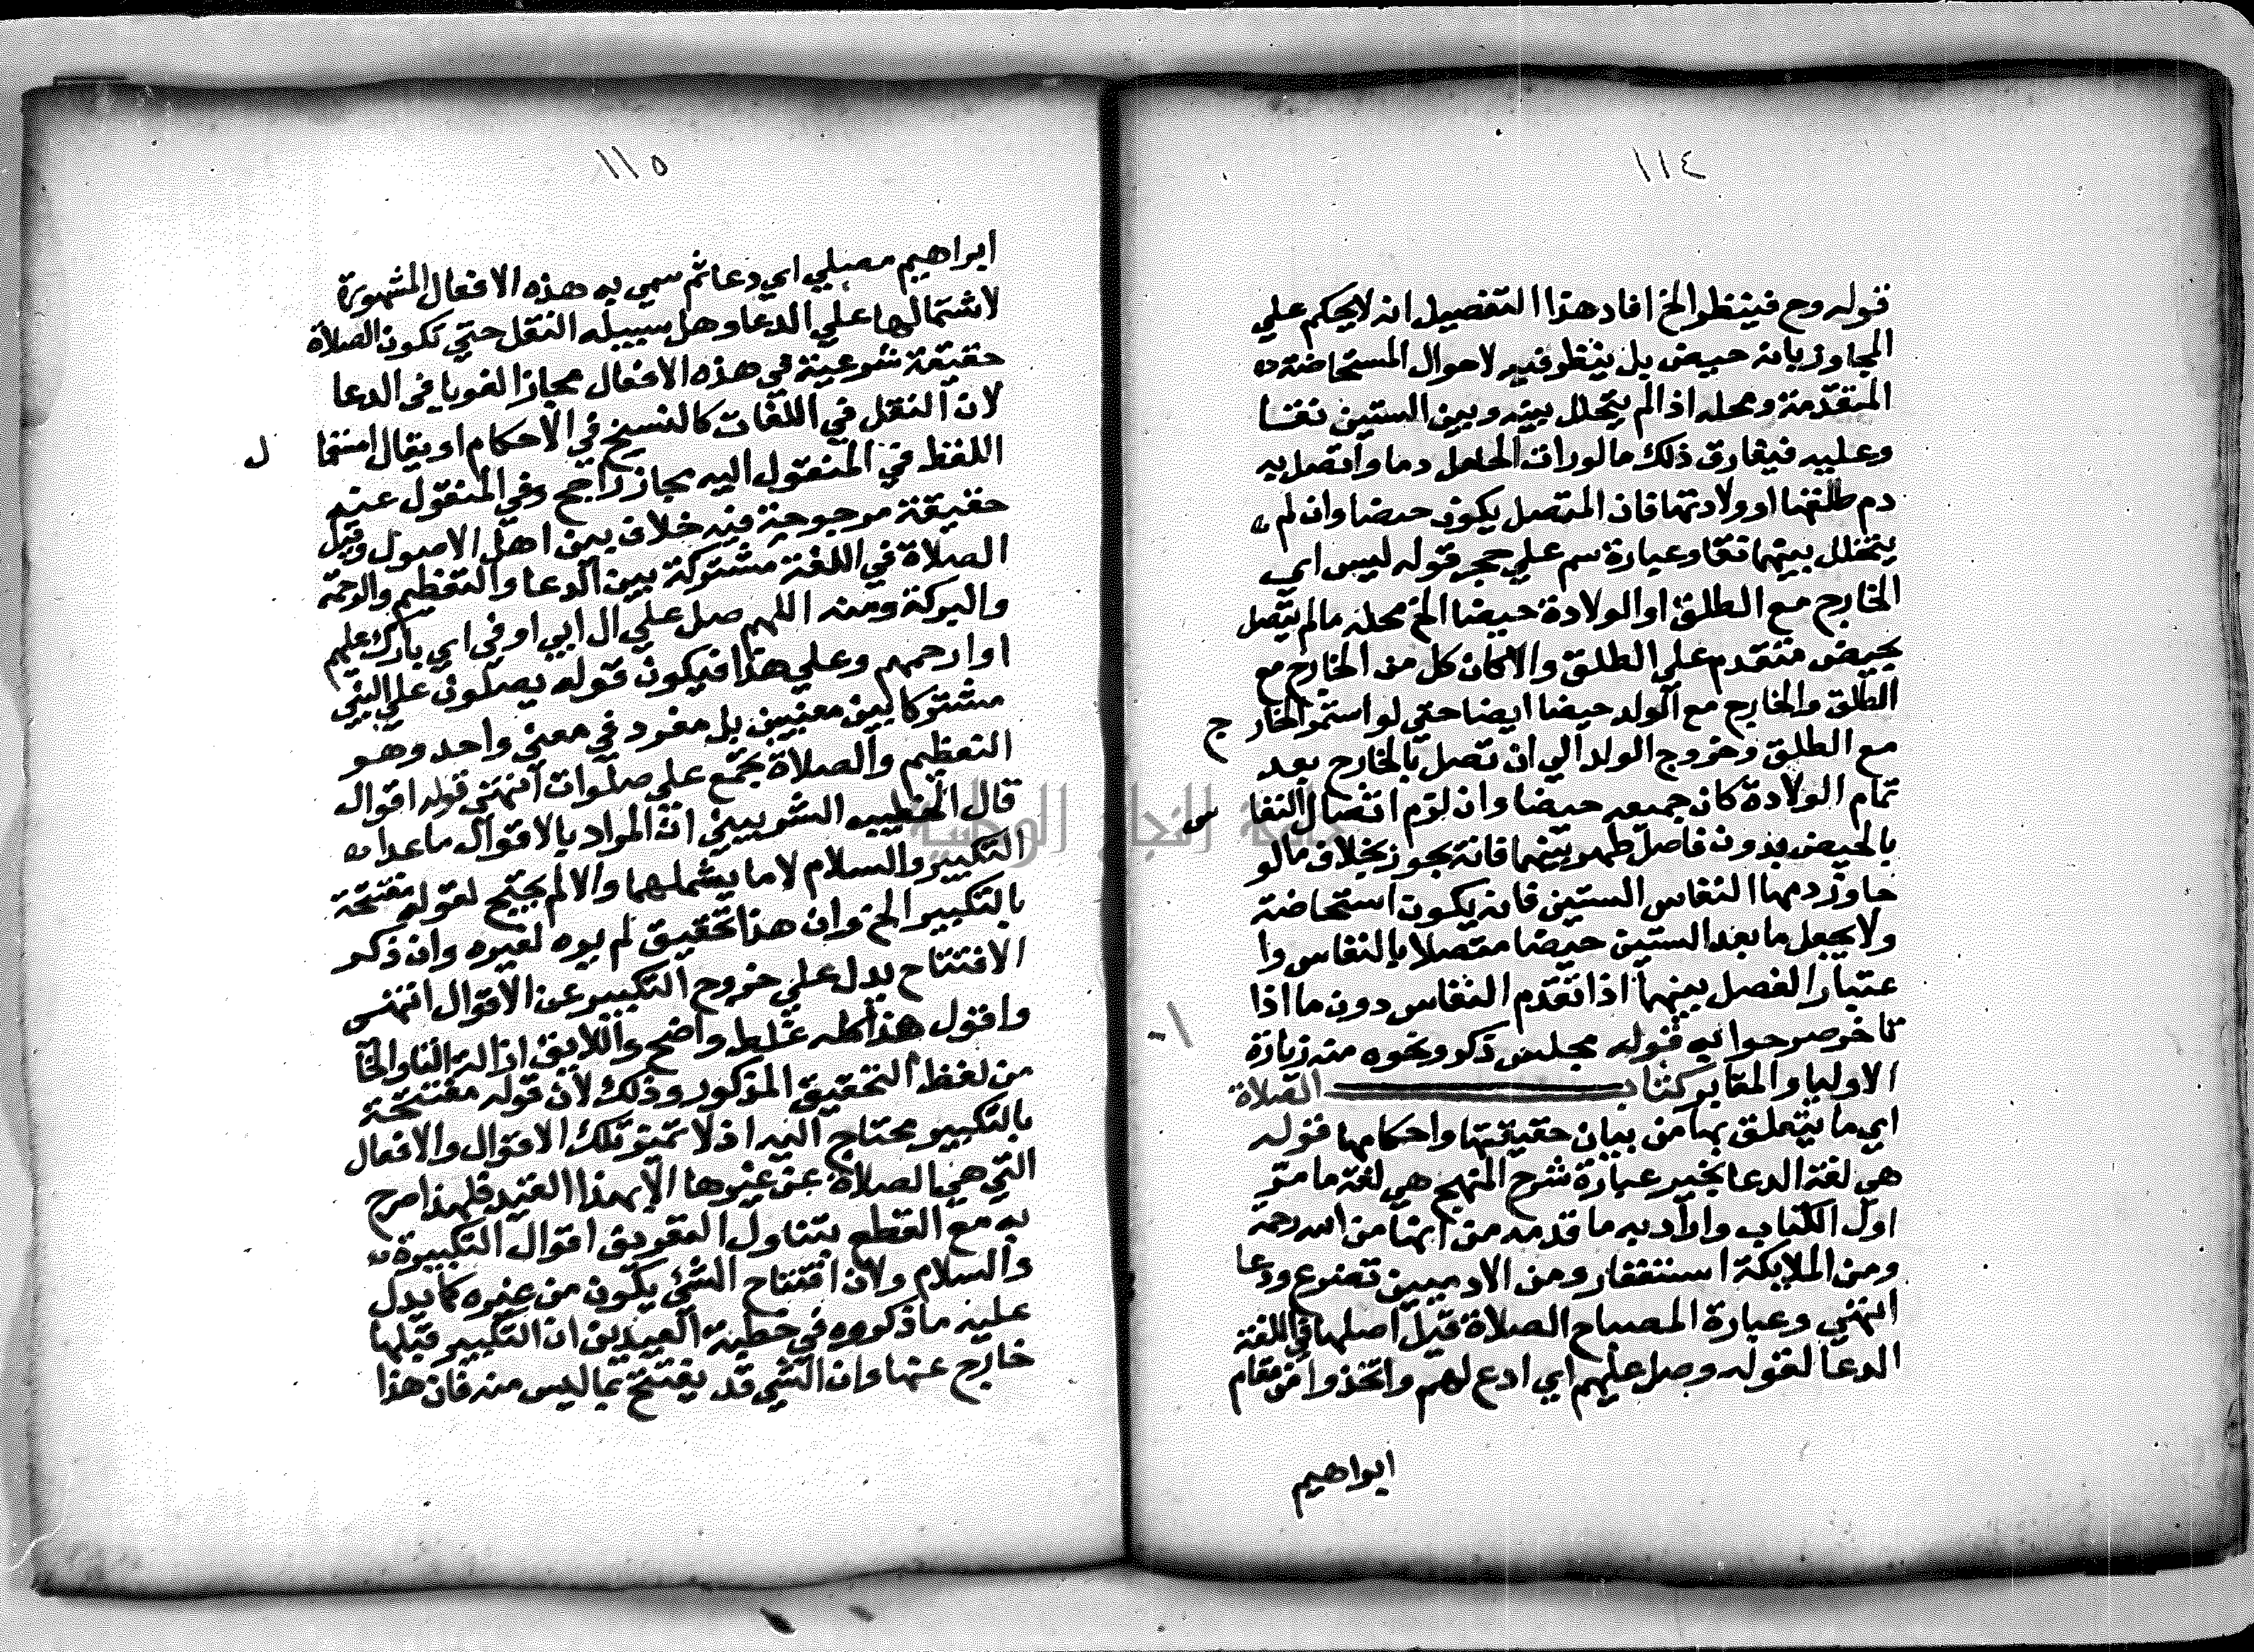 ١١٤
قوله وح فينظر الخ افاد هذا التفصيل انه لايحكم علي
المجاوز بانه حيض بل ينظر فيه لاحوال المستحاضة
المتقدمة ومحله اذا لم يتخلل بينه وبين الستين نقا
وعليه فيفارق ذلك مالورات الحامل دما واتصل به
دم طلقها او ولادتها فان المتصل يكون حيضا وان لم
يتخلل بينهما نقا وعبارة سم علي حجر قوله ليس اي
الخارج مع الطلق او الولادة حيضا الخ محله مالم يتصل
بحيض متقدم علي الطلق والا كان كل من الخارج مع
الطلق والخارج مع الولد حيضا ايضا حتي لو استمر الخارج
مع الطلق وخروج الولد الي ان تصل بالخارج بعد
تمام الولادة كان جميعه حيضا وان لزم اتصال النفاس
بالحيض بدون فاصل طهر بينهما فانه يجوز بخلاف مالو
جاوز دمها النفاس الستين فانه يكون استحاضة
ولا يجعل ما بعد الستين حيضا متصلا بالنفاس وا
عتبار الفصل بينهما اذا تقدم النفاس دون ما اذا
تاخر صرحوا به قوله مجلس ذكر ونحوه منه زيارة
الاوليا والمقابر كتاب الصلاة
اي ما يتعلق بها من بيان حقيقتها واحكامها قوله
هي لغة الدعا بخير عبارة شرح المنهج هي لغة ما مر
اول الكتاب واراد به ما قدمه من انها من الله رحمة
ومن الملايكة استغفار ومن الادميين تضرع ودعا
انتهي وعبارة المصباح الصلاة قيل اصلها في اللغة
الدعا لقوله وصل عليهم اي ادع لهم واتخذوا من مقام
ابراهيم
١١٥
ابراهيم مصلي اي دعا ثم سمي به هذه الافعال المشهورة
لاشتمالها علي الدعا وهل سبيله النقل حتي تكون الصلاة
حقيقة شرعية في هذه الافعال مجازا لغويا في الدعا
لان النقل في اللغات كالنسخ في الاحكام او يقال استعمال
اللفظ في المنقول اليه مجاز راجح وفي المنقول عنه
حقيقة مرجوحة فيه خلاف بين اهل الاصول وقيل
الصلاة في اللغة مشتركة بين الدعا والتعظيم والرحمة
والبركة ومنه اللهم صل علي ال ابي اوفي اي بارك عليهم
او ارحمهم وعلي هذا فيكون قوله يصلون علي النبي
مشتركا بين معنيين بل مفرد في معني واحد وهو
التعظيم والصلاة تجمع علي صلوات انتهي قوله اقوال
قال الخطيب الشربيني ان المراد بالاقوال ماعدا
التكبير والسلام لا ما يشملهما والا لم يحتج لقوله مفتتحة
بالتكبير الخ وان هذا تحقيق لم يره لغيره وان ذكر
الافتتاح يدل علي خروج التكبير عن الاقوال انتهي
واقول هذا كله غلط واضح واللايق ازالة القاو الخا
من لفظ التحقيق المذكور وذلك لان قوله مفتتحة
بالتكبير محتاج اليه اذ لا تميز تلك الاقوال والافعال
التي هي الصلاة عن غيرها الا بهذا القيد فلهذا صرح
به مع القطع بتناول التعريف اقوال التكبيرة
والسلام ولان افتتاح الشي يكون من غيره كما يدل
عليه ما ذكروه في خطبة العيدين ان التكبير قبلها
خارج عنها وان الشي قد يفتتح بما ليس منه فان هذا